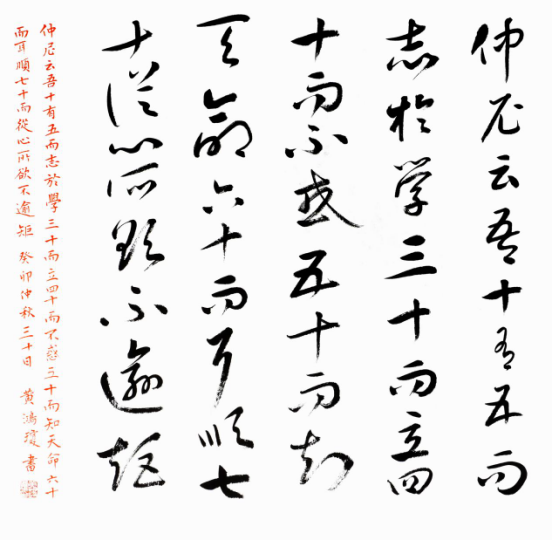 仲尼云吾十有五而
志於学三十而立四
十而不惑五十而知
天命六十而耳順七
十從心所欲不逾矩
仲尼云吾十有五而志於學三十而立四十而不惑五十而知天命六十
而耳順七十而從心所欲不逾矩 癸卯仲秋三十日 黄鴻瓊書